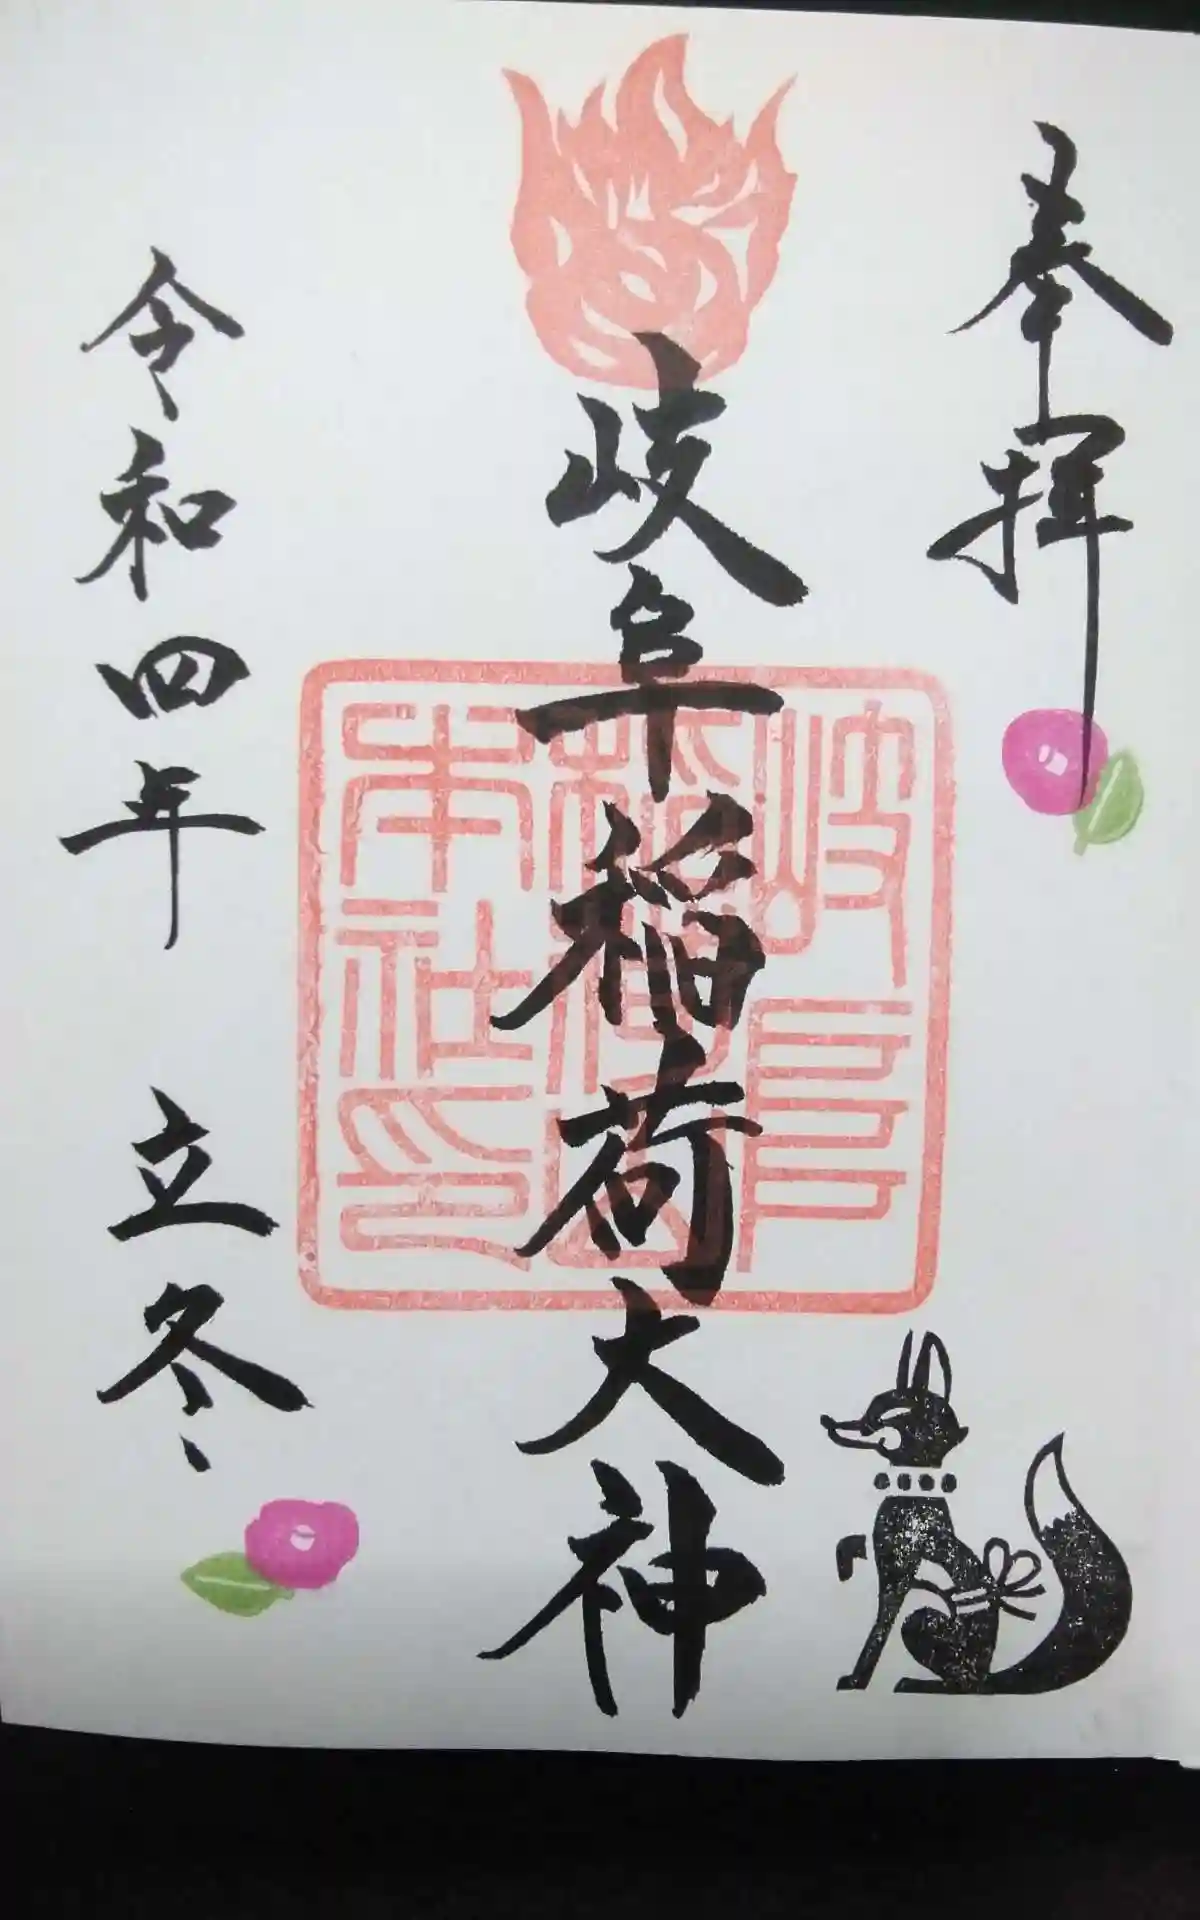 奉拝
岐阜稲荷大神
岐阜
稲荷山
本社印
令和四年 立冬